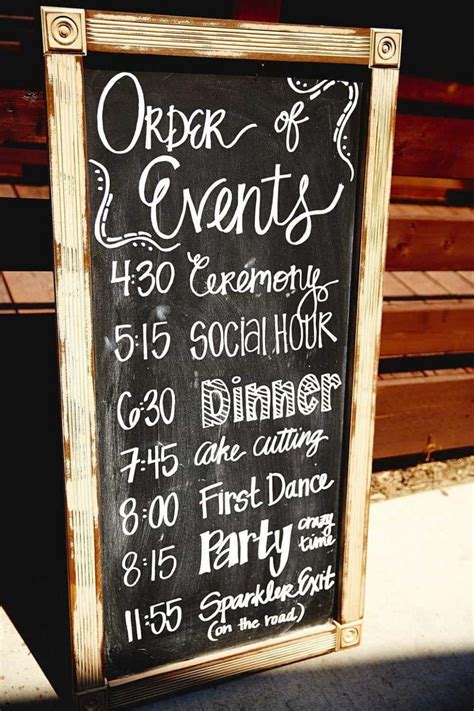 Order of
Events
4:30 Ceremony
5:15 Social Hour
6:30 Dinner
7:45 cake cutting
8:00 First Dance
8:15 Party crazy time
11:55 Sparkler Exit
(on the road)